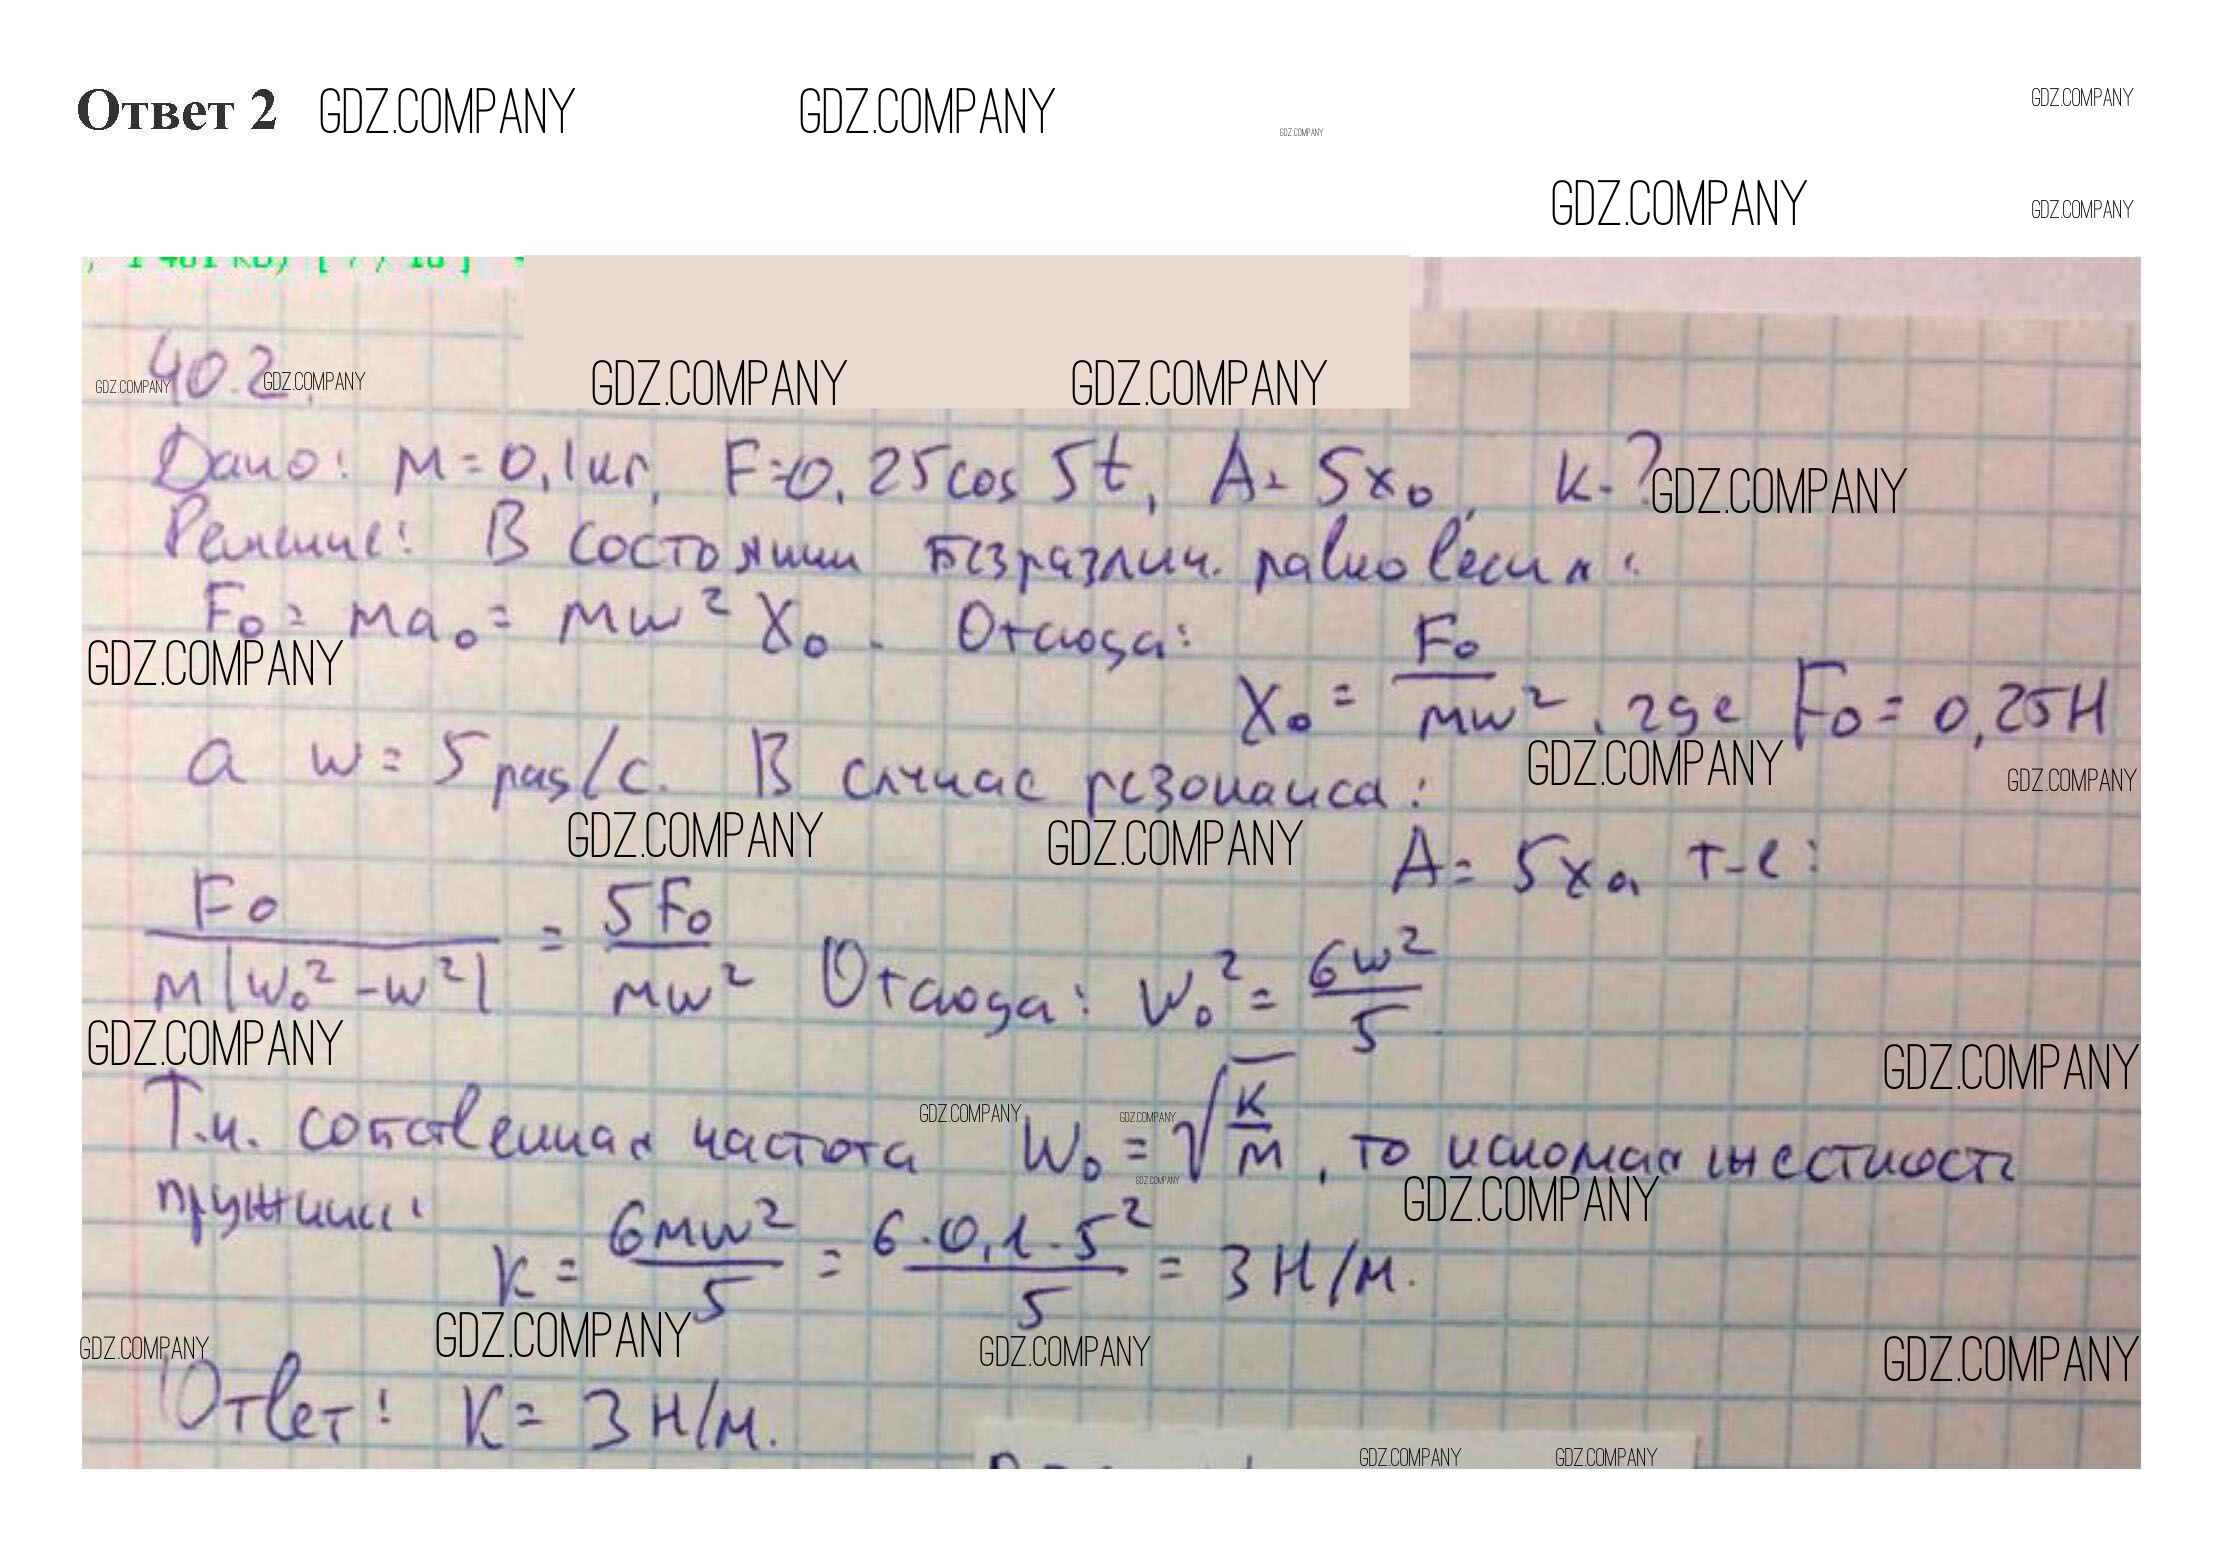 Ответ 2 GDZ.COMPANY GDZ.COMPANY GDZ.COMPANY GDZ.COMPANY
GDZ.COMPANY GDZ.COMPANY
40.2.
GDZ.COMPANY GDZ.COMPANY GDZ.COMPANY GDZ.COMPANY
Дано: m = 0,1 кг, F = 0,25 cos 5t, A = 5x₀, k - ?
GDZ.COMPANY
Решение: В состоянии безразлич. равновесия:
F₀ = ma₀ = mw² X₀. Отсюда:
GDZ.COMPANY
X₀ = F₀/mw², где F₀ = 0,25 Н
а w = 5 рад/с. В случае резонанса:
GDZ.COMPANY GDZ.COMPANY
GDZ.COMPANY GDZ.COMPANY
A = 5x₀, т-е:
F₀/m|w₀² - w²| = 5F₀/mw² Отсюда: w₀² = 6w²/5
GDZ.COMPANY GDZ.COMPANY
GDZ.COMPANY GDZ.COMPANY
Т.к. собственная частота w₀ = √k/m, то искомая жесткость
GDZ.COMPANY GDZ.COMPANY
пружины:
k = 6mw²/5 = 6·0,1·5²/5 = 3 Н/м.
GDZ.COMPANY GDZ.COMPANY GDZ.COMPANY GDZ.COMPANY
Ответ: K = 3 Н/м.
GDZ.COMPANY GDZ.COMPANY